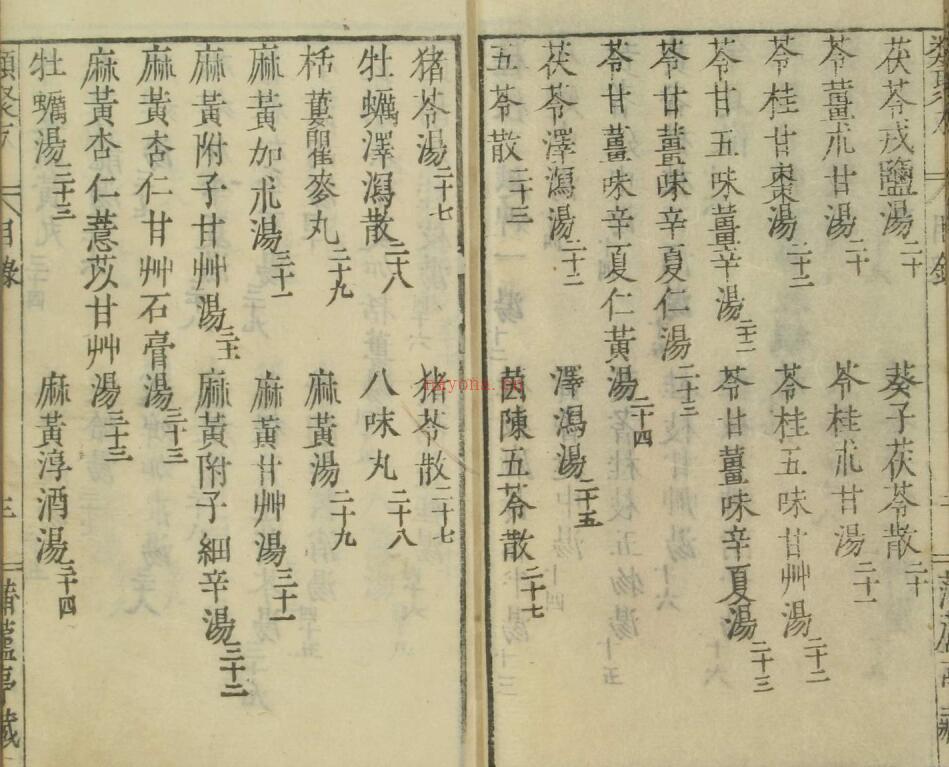 茯苓戎鹽湯二十　葵子茯苓散二十
苓薑朮甘湯二十　苓桂朮甘湯二十一
苓桂甘棗湯二十二　苓桂五味甘艸湯二十二
苓甘五味薑辛湯二十二　苓甘薑味辛夏湯二十三
苓甘薑味辛夏仁湯二十三
苓甘薑味辛夏仁黃湯二十四
茯苓澤瀉湯二十二　澤瀉湯二十五
五苓散二十三　茵陳五苓散二十七
猪苓湯二十七　猪苓散二十七
牡蠣澤瀉散二十八　八味丸二十八
栝蔞瞿麥丸二十九　麻黃湯二十九
麻黃加朮湯三十一　麻黃甘艸湯三十一
麻黃附子甘艸湯　麻黃附子細辛湯三十二
麻黃杏仁甘艸石膏湯三十三
麻黃杏仁薏苡甘艸湯三十三
牡蠣湯三十三　麻黃淳酒湯三十四
類聚方　目錄　三　亭藏